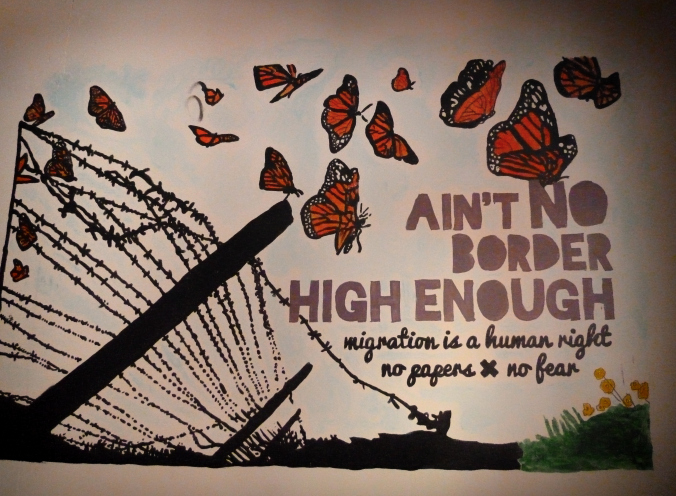 AIN'T NO
BORDER
HIGH ENOUGH
migration is a human right
no papers ✖ no fear